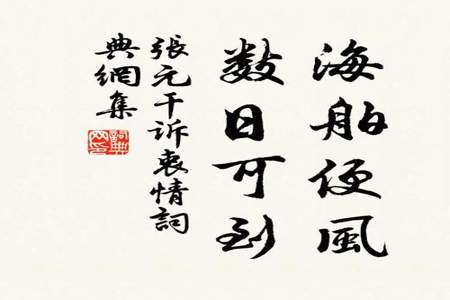 海舶便風
数日可到
張元干诉衷情詞
典網集